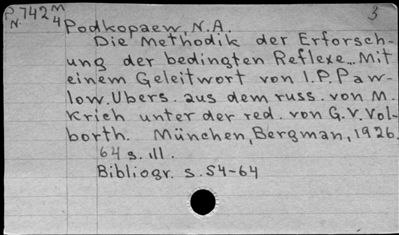 P.742 M 3
N. 4
Podkopaew, N.A.
Die Methodik der Erforsch-
ung der bedingten Reflexe... Mit
einem Geleitwort von I.P. Paw-
low. Ubers. aus dem russ. von M.
Krich unter der red. von G.V. Vol-
borth. München, Bergman, 1926.
64 s. ill.
Bibliogr. s. 54-64